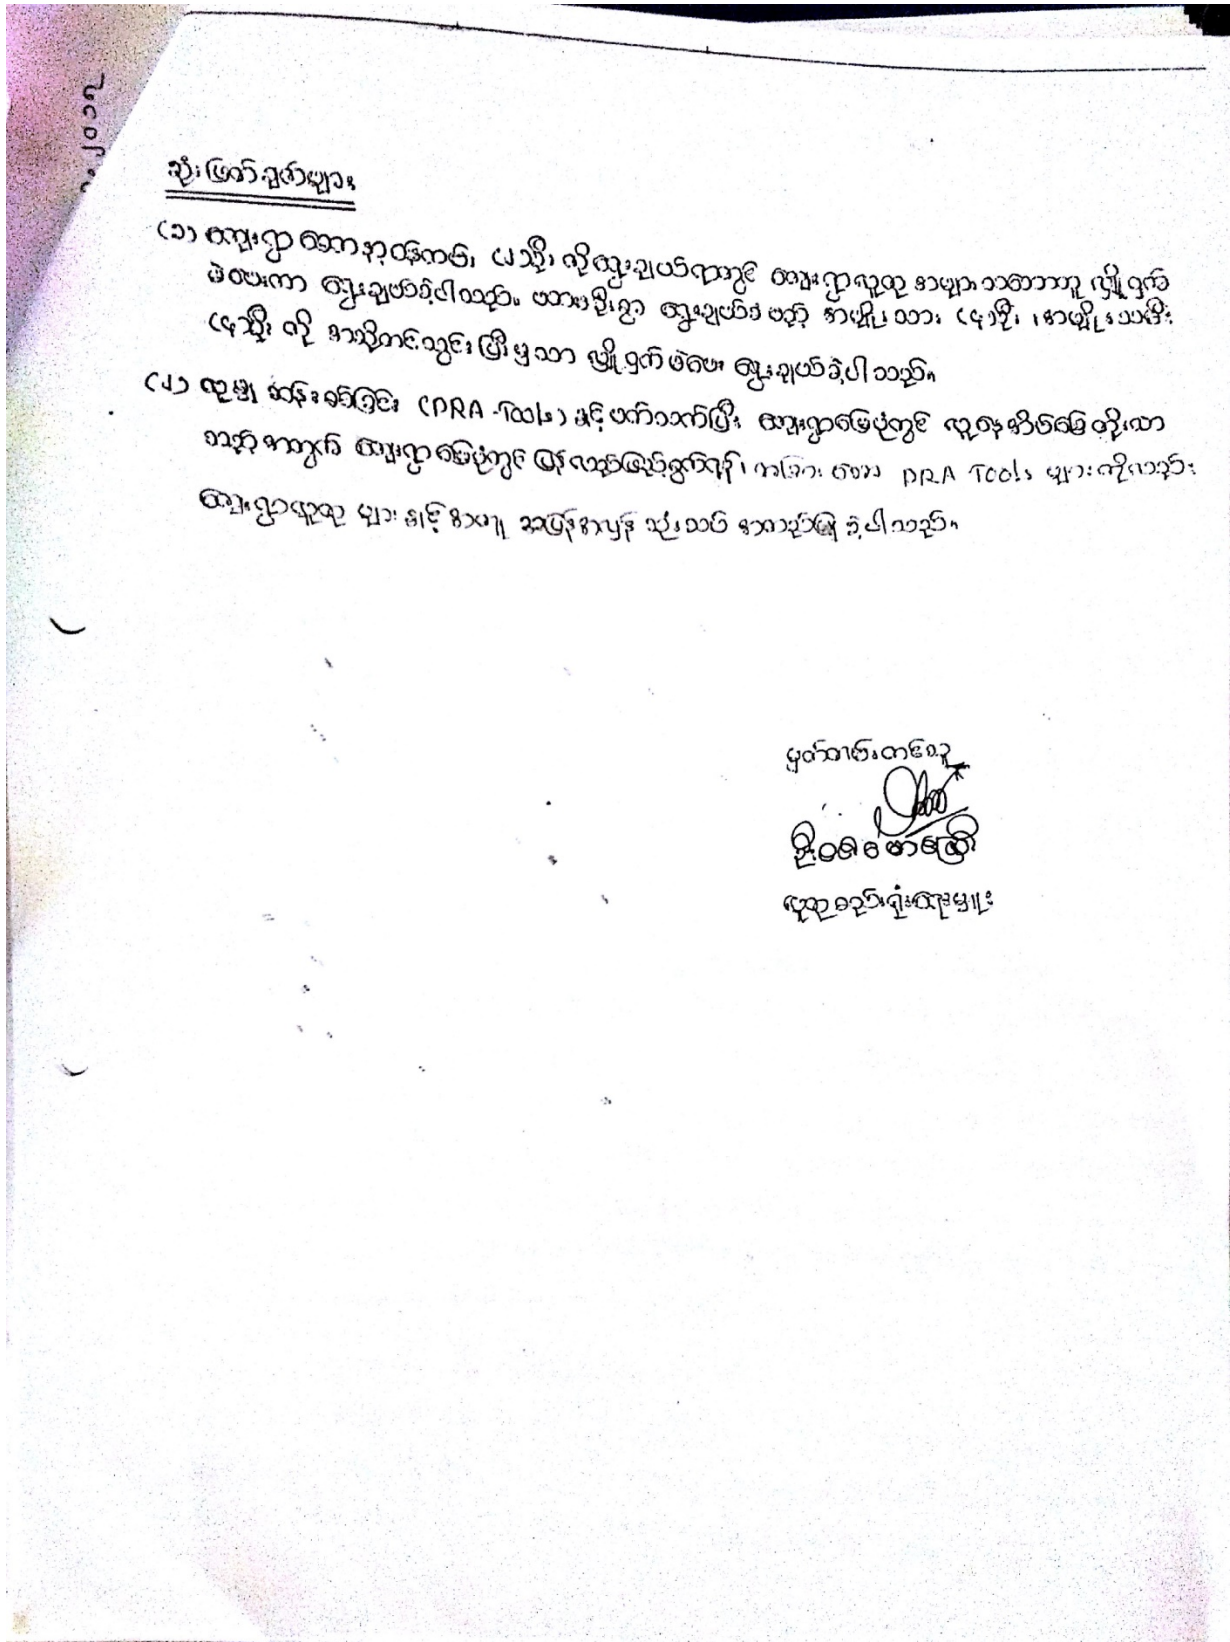 ဆုံးဖြတ်ချက်များ
(၁) ကျေးရွာစေတနာ့ဝန်ထမ်း (၂)ဦး ကိုရွေးချယ်ရာတွင် ကျေးရွာလူထု အများသဘောတူ လျှို့ဝှက်
မဲပေးကာ ရွေးချယ်ခဲ့ပါသည်။ ပထမဦးစွာ ရွေးချယ်ခံမည့် အမျိုးသား (၄)ဦး ၊ အမျိုးသမီး
(၄)ဦး ကို အဆိုတင်သွင်းပြီးမှသာ လျှို့ဝှက်မဲပေး ရွေးချယ်ခဲ့ပါသည်။
(၂) လူမှုဆန်းစစ်ခြင်း (PRA-Tools) နှင့်ပတ်သက်ပြီး ကျေးရွာမြေပုံတွင် လူနေအိမ်ခြေတိုးလာ
သည့်အတွက် ကျေးရွာမြေပုံတွင် ပြန်လည်ဖြည့်စွက်ရန်၊ အခြားသော PRA Tools များကိုလည်း
ကျေးရွာလူထု များနှင့်အတူ အပြန်အလှန် သုံးသပ် အတည်ပြု ခဲ့ပါသည်။
မှတ်တမ်းတင်သူ
လူထုစည်းရုံးရေးမှူး